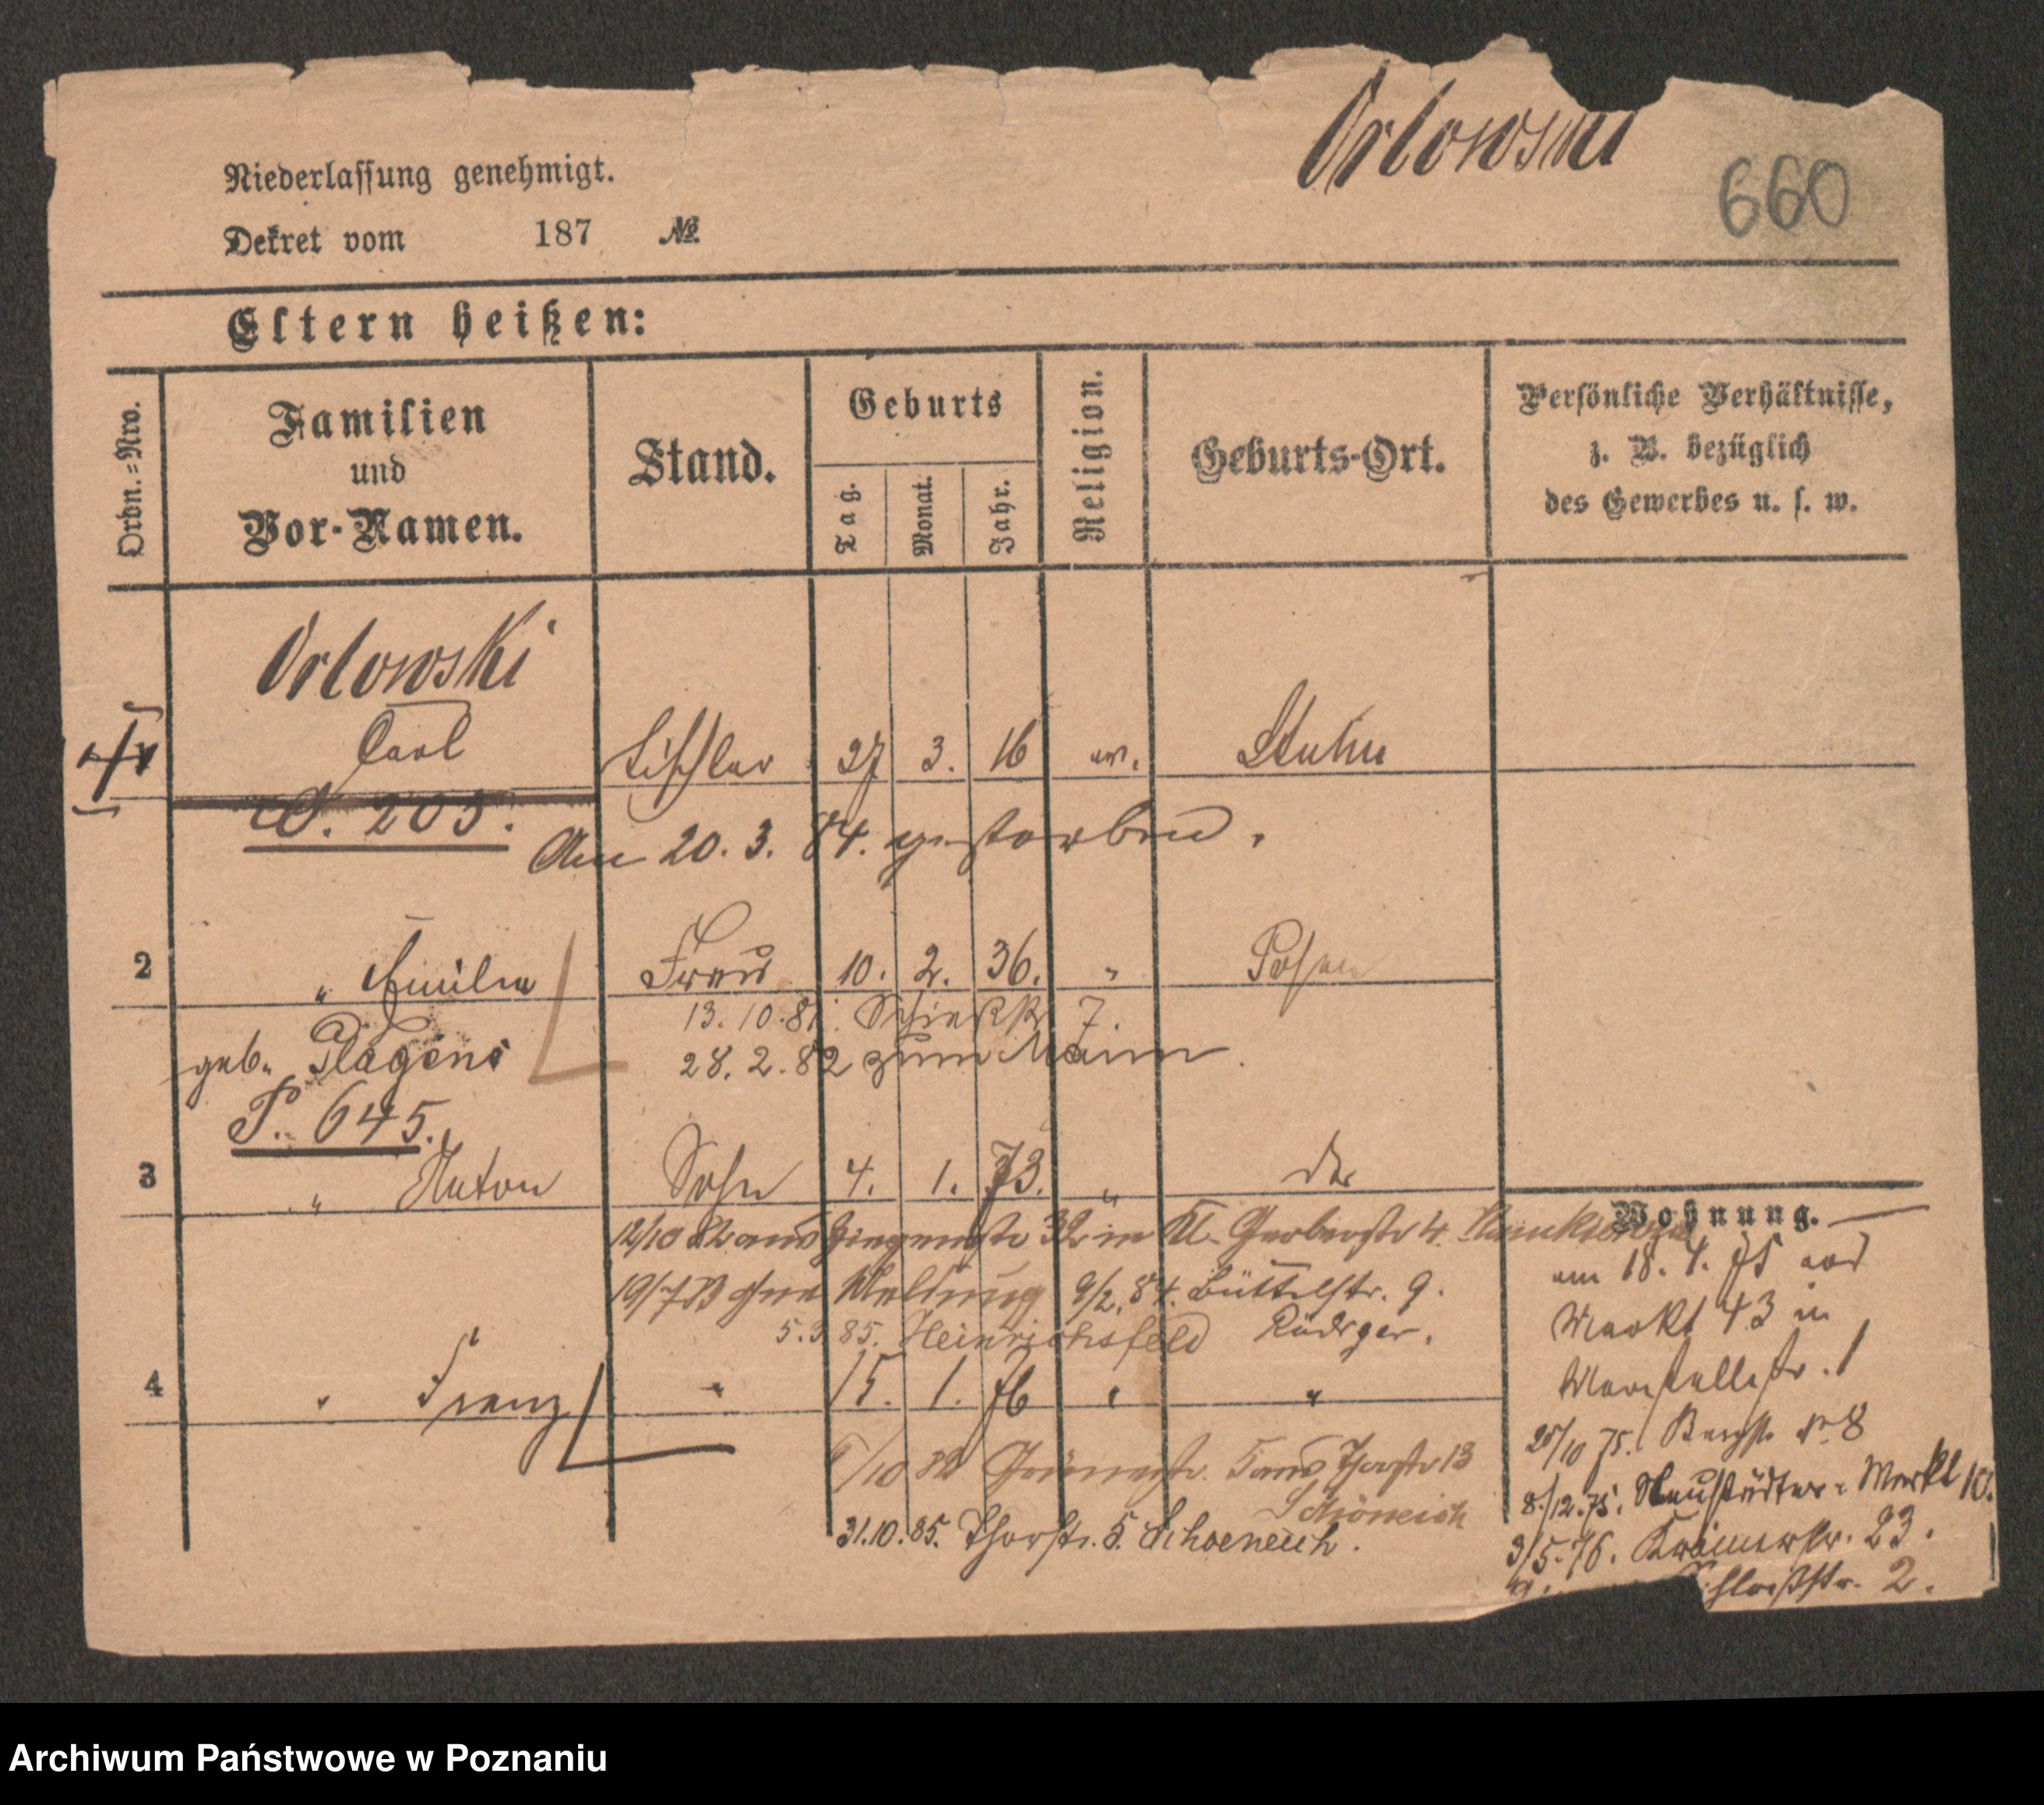 Orlowski
660
Niederlassung genehmigt.
Dekret vom 187 №
Eltern heißen:
Ordn.=Nro.
Familien und Vor-Namen.
Stand.
Geburts
Tag.
Monat.
Jahr.
Religion.
Geburts-Ort.
Persönliche Verhältnisse,
z. B. bezüglich
des Gewerbes u. s. w.
Orlowski
Carl Tischler 27 3. 16 ev. Stuhm
O. 205.
Am 20. 3. 84. gestorben.
2 " Emilie Frau 10. 2. 36. " Posen
13. 10. 81. 7.
geb. Plagens 28. 2. 82 zum Mann.
P. 645.
3 " Anton Sohn 4. 1. 73. " do
Wohnung.
12/10 82 aus 32 in Kl. Gerberstr 4.
am 18. 4. 75 aus
19/7 83 ohne Meldung 9/2. 84. Büttelstr. 9.
Markt 43 in
5. 3 85. Heinrichsfeld Rüdiger.
Marstallstr. 1
4 " Franz " 15. 1. 76 " "
25/10 75. Bergstr № 8
6/10 82 5 aus Thorstr 13
8./12. 75. Neustädter-Markt 10.
Schöneich
31. 10. 85. Thorstr. 5. Schoeneich.
3/5. 76. Krämerstr. 23.
2.
Archiwum Państwowe w Poznaniu